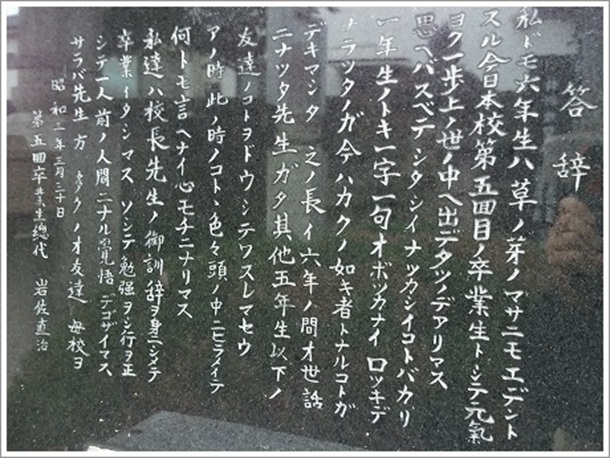 答辞
私ドモ六年生ハ草ノ芽ノマサニモエデント
スル今日本校第五回目ノ卒業生トシテ元氣
ヨク一歩上ノ世ノ中ヘ出デタツノデアリマス
思ヘバスベテシタシイナツカシイコトバカリ
一年生ノトキ一字一句オボツカナイロツキデ
ナラツタノガ今ハカクノ如キ者トナルコトガ
デキマシタ之ノ長イ六年ノ間オ世話
ニナツタ先生ガタ其他五年生以下ノ
友達ノコトヲドウシテワスレマセウ
アノ時此ノ時ノコト、色々頭ノ中ニヒライテ
何トモ言ヘナイ心モチニナリマス
私達ハ校長先生ノ御訓辞ヲ身ニシメテ
卒業イタシマス ソシテ勉強ヲシ行ヲ正
シテ一人前ノ人間ニナル覚悟デゴザイマス
サラバ先生方 多クノオ友達 母校ヲ
昭和二年三月二十日
第五回卒業生總代 岩佐直治